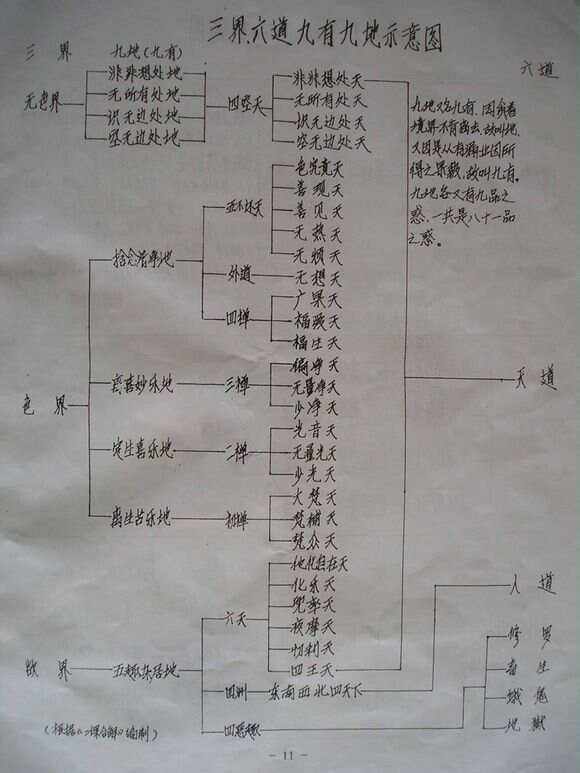 三界六道九有九地示意图
三界 九地(九有) 六道
无色界
非非想处地
无所有处地
识无边处地
空无边处地
四空天
非非想处天
无所有处天
识无边处天
空无边处天
九地又名九有,因所有
境界不肯舍去,故叫地,
又因是从有漏业因所
得之果报,故叫九有。
九地各又有九品之
惑,一共是八十一品
之惑。
色界
舍念清净地
五不还天
色究竟天
善现天
善见天
无热天
无烦天
外道
无想天
四禅
广果天
福爱天
福生天
离喜妙乐地
三禅
偏净天
无量净天
少净天
定生喜乐地
二禅
光音天
无量光天
少光天
离生喜乐地
初禅
大梵天
梵辅天
梵众天
天道
欲界
五趣杂居地
六天
他化自在天
化乐天
兜率天
夜摩天
忉利天
四王天
四洲
东南西北四天下
人道
四恶趣
修罗
畜生
饿鬼
地狱
(根据《二课合解》编制)
-11-